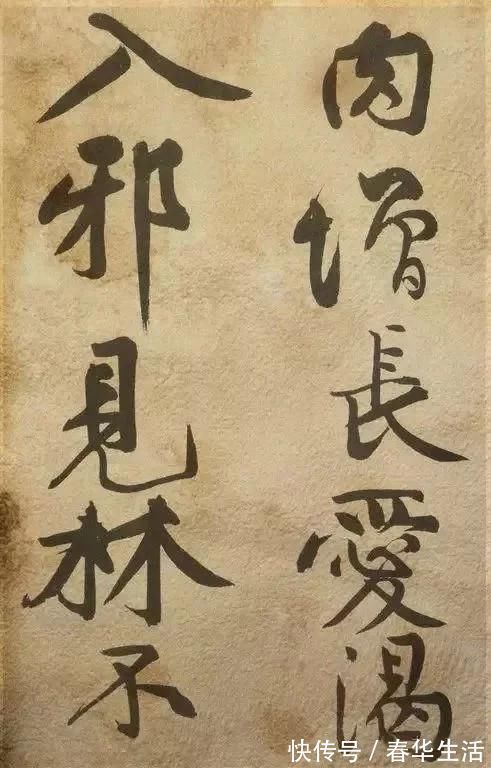 肉增長愛渴
入邪見林不
快传号/春华生活